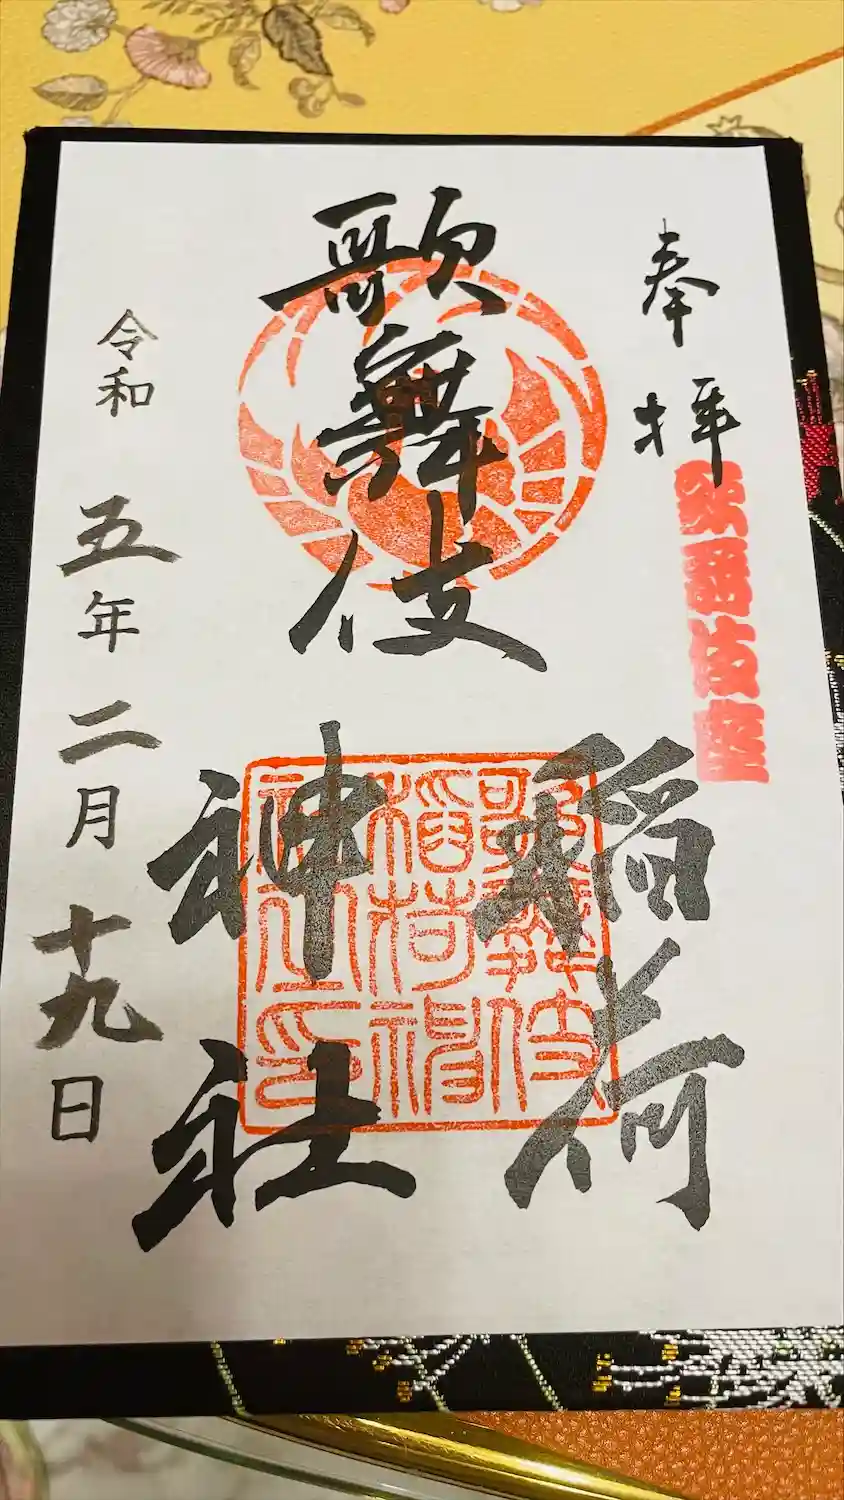 奉拝
歌舞伎座
歌舞伎
稲荷
神社
歌舞伎
稲荷神
社之印
令和五年二月十九日